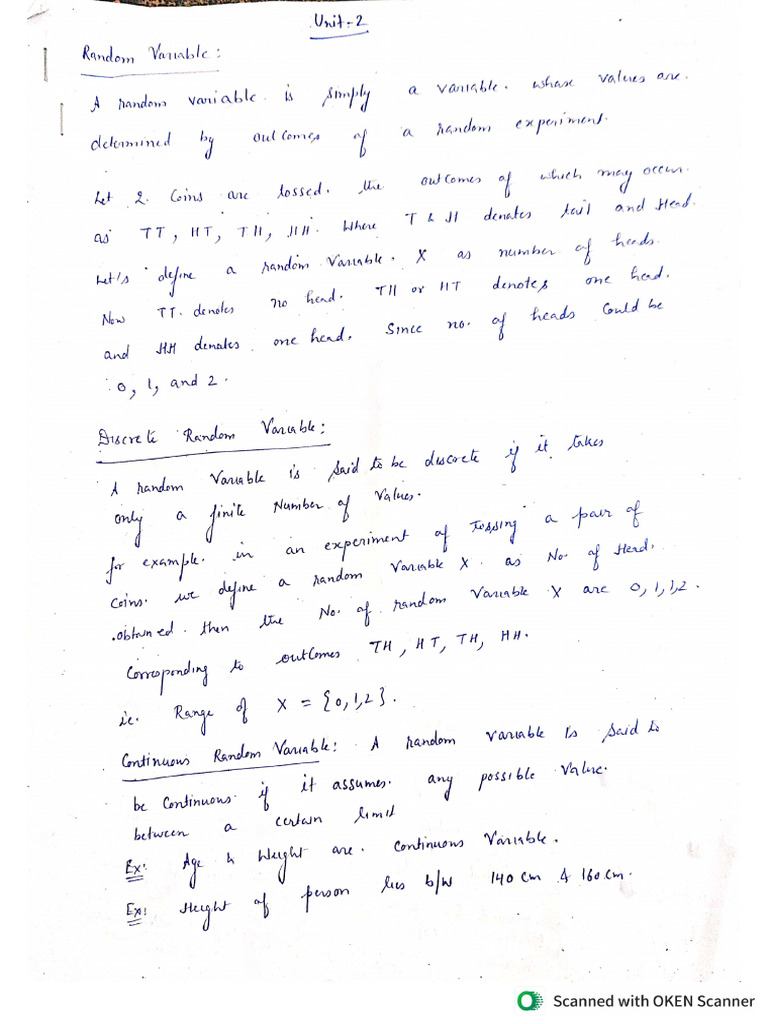 Unit-2
Random Variable:
A random variable is simply a variable. whose values are.
determined by outcomes of a random experiment.
Let 2 Coins are tossed. the outcomes of which may occur.
as TT, HT, TH, HH. Where T & H denotes tail and Head.
Let's define a random Variable. X as number of heads.
Now TT. denotes no head. TH or HT denotes one head.
and HH denates one head. Since no. of heads Could be
0, 1, and 2.
Discrete Random Variable:
A random Variable is said to be discrete if it takes
only a finite Number of Values.
for example. in an experiment of Tossing a pair of
Coins. we define a random Variable X. as No. of Head.
obtained. then the No. of random Variable X are 0,1,1,2.
Corresponding to outcomes TH, HT, TH, HH.
ie. Range of X = {0,1,2}.
Continuous Random Variable: A random variable is said to
be Continuous if it assumes. any possible Value.
between a certain limit
Ex: Age & Weight are. Continuous Variable.
Ex: Height of person lies b/w 140 cm & 160 cm.
Scanned with OKEN Scanner